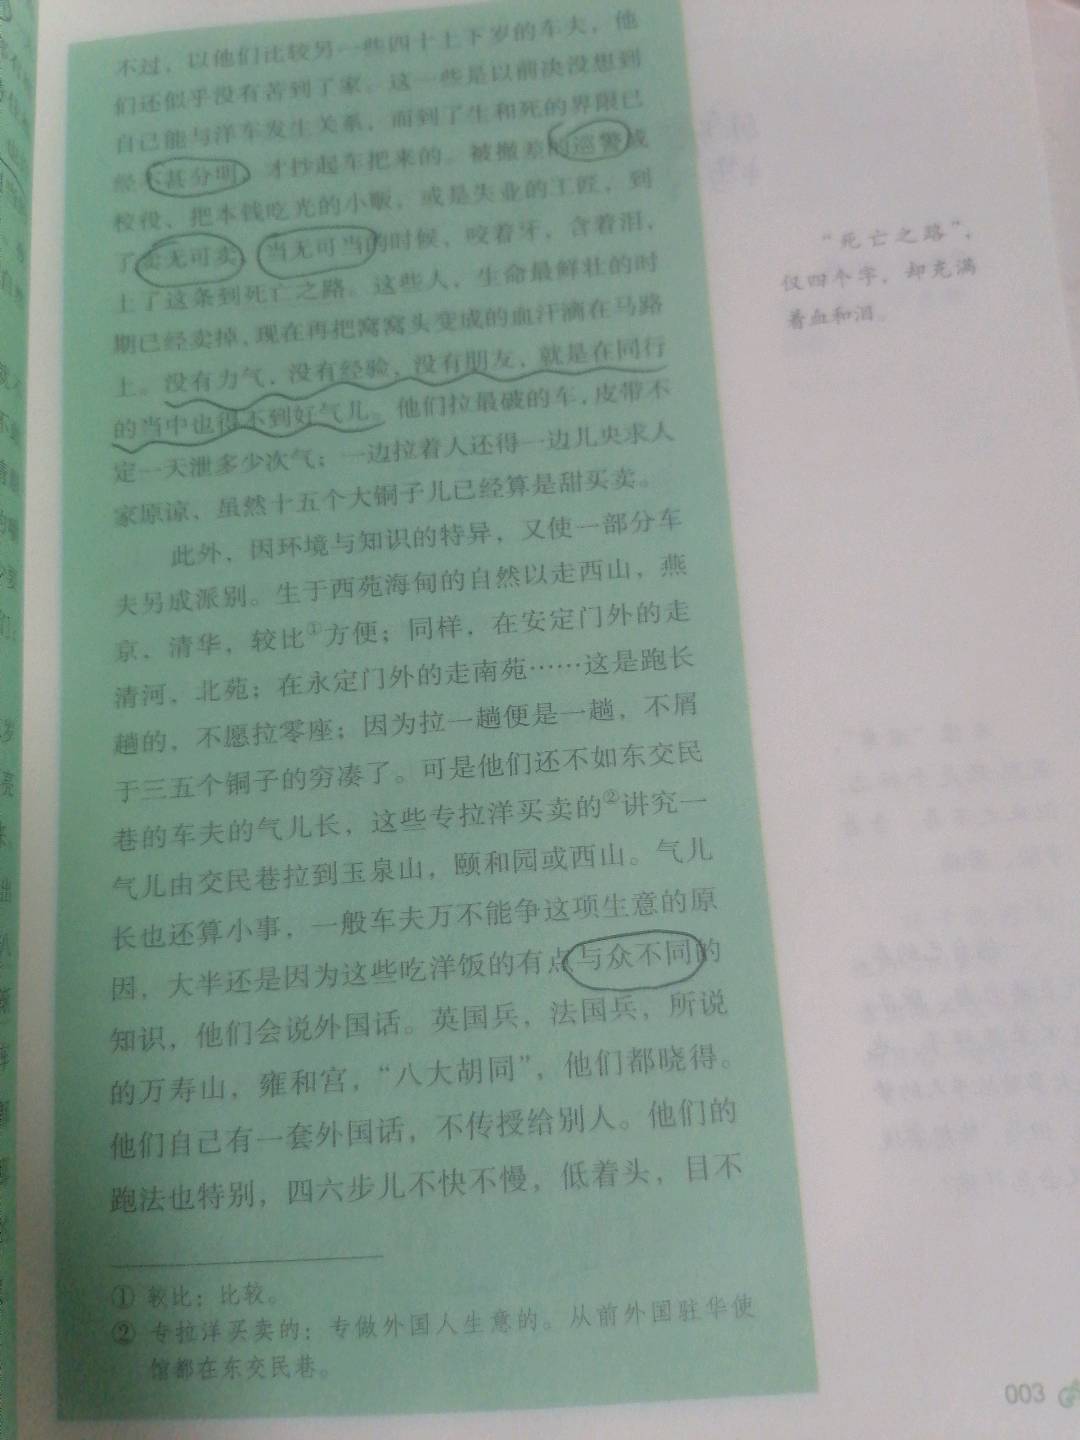 不过，以他们比较另一些四十上下岁的车夫，他
们还似乎没有苦到了家。这一些是以前决没想到
自己能与洋车发生关系，而到了生和死的界限已
经不甚分明，才抄起车把来的。被撤差的巡警或
校役，把本钱吃光的小贩，或是失业的工匠，到
了卖无可卖，当无可当的时候，咬着牙，含着泪，
上了这条到死亡之路。这些人，生命最鲜壮的时
期已经卖掉，现在再把窝窝头变成的血汗滴在马路
上。没有力气，没有经验，没有朋友，就是在同行
的当中也得不到好气儿。他们拉最破的车，皮带不
定一天泄多少次气；一边拉着人还得一边儿央求人
家原谅，虽然十五个大铜子儿已经算是甜买卖。
此外，因环境与知识的特异，又使一部分车
夫另成派别。生于西苑海甸的自然以走西山，燕
京，清华，较比①方便；同样，在安定门外的走
清河，北苑；在永定门外的走南苑……这是跑长
趟的，不愿拉零座；因为拉一趟便是一趟，不屑
于三五个铜子的穷凑了。可是他们还不如东交民
巷的车夫的气儿长，这些专拉洋买卖的②讲究一
气儿由交民巷拉到玉泉山，颐和园或西山。气儿
长也还算小事，一般车夫万不能争这项生意的原
因，大半还是因为这些吃洋饭的有点与众不同的
知识，他们会说外国话。英国兵，法国兵，所说
的万寿山，雍和宫，“八大胡同”，他们都晓得。
他们自己有一套外国话，不传授给别人。他们的
跑法也特别，四六步儿不快不慢，低着头，目不
① 较比：比较。
② 专拉洋买卖的：专做外国人生意的。从前外国驻华使
馆都在东交民巷。
“死亡之路”，
仅四个字，却充满
着血和泪。
003